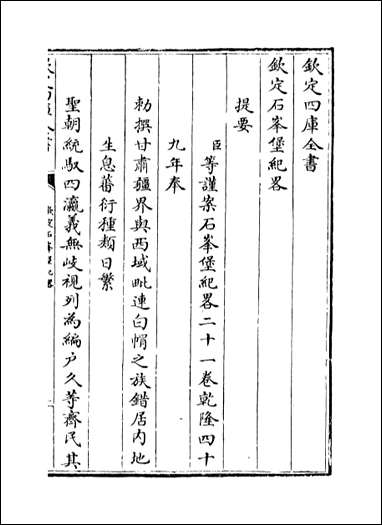 欽定四庫全書
欽定石峯堡紀畧
提要
臣等謹案石峯堡紀畧二十一卷乾隆四十
九年奉
勅撰甘肅疆界與西域毗連白㡌之族錯居内地
生息蕃衍種類日繁
聖朝統馭四瀛義無岐視列為編户久等齊民其